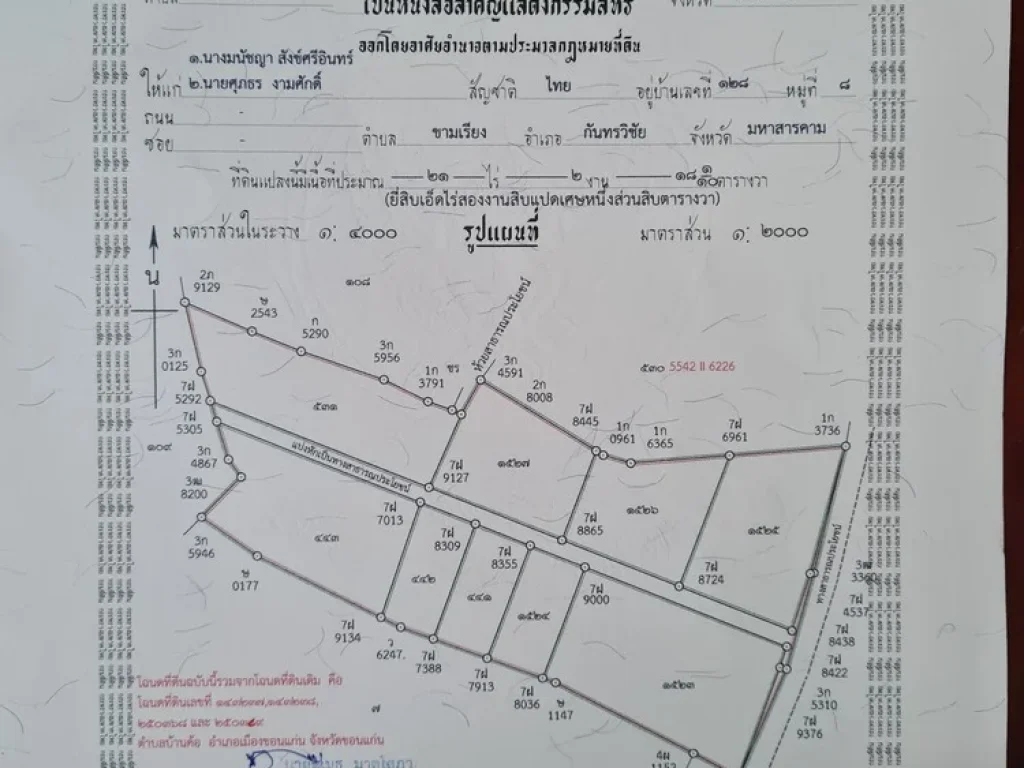 เป็นหนังสือสำคัญแสดงกรรมสิทธิ์
ออกโดยอาศัยอำนาจตามประมวลกฎหมายที่ดิน
๑.นางมนัชญา สังข์ศรีอินทร์
ให้แก่ ๒.นายศุภธร งามศักดิ์ สัญชาติ ไทย อยู่บ้านเลขที่ ๑๒๘ หมู่ที่ ๘
ถนน -
ซอย - ตำบล ขามเรียง อำเภอ กันทรวิชัย จังหวัด มหาสารคาม
ที่ดินแปลงนี้มีเนื้อที่ประมาณ ๒๑ ไร่ ๒ งาน ๑๘ ๑/๑๐ ตารางวา
(ยี่สิบเอ็ดไร่สองงานสิบแปดเศษหนึ่งส่วนสิบตารางวา)
มาตราส่วนในระวาง ๑: ๔๐๐๐ รูปแผนที่ มาตราส่วน ๑: ๒๐๐๐
น
๑๐๘
2ภ
9129
2543
ก
5290
3ก
5956
1ก
3791
ห้วยสาธารณประโยชน์
3ก
4591
2ก
8008
๕๓๐ 5542 II 6226
3ก
0125
7ฝ
5292
7ฝ
5305
๕๓๑
7ฝ
8445
1ก
0961
1ก
6365
7ฝ
6961
1ก
3736
๑๐๙
3ก
4867
8200
แบ่งหักเป็นทางสาธารณประโยชน์
7ฝ
9127
๑๕๒๗
7ฝ
7013
๑๕๒๖
๑๕๒๕
3ก
5946
๔๔๓
7ฝ
8309
7ฝ
8355
7ฝ
8865
7ฝ
8724
7ฝ
9000
ทางสาธารณประโยชน์
ษ
0177
๔๔๒
๔๔๑
๑๕๒๔
7ฝ
4537
7ฝ
8438
7ฝ
8422
7ฝ
9134
ว
6247.
7ฝ
7388
7ฝ
7913
7ฝ
8036
ษ
1147
๑๕๒๓
3ก
5310
7ฝ
9376
๗
โฉนดที่ดินฉบับนี้รวมจากโฉนดที่ดินเดิม คือ
โฉนดที่ดินเลขที่ ๑๔๓๒๓๗,๑๔๓๒๓๘,
๒๕๐๓๖๘ และ ๒๕๐๓๖๙
ตำบลบ้านค้อ อำเภอเมืองขอนแก่น จังหวัดขอนแก่น